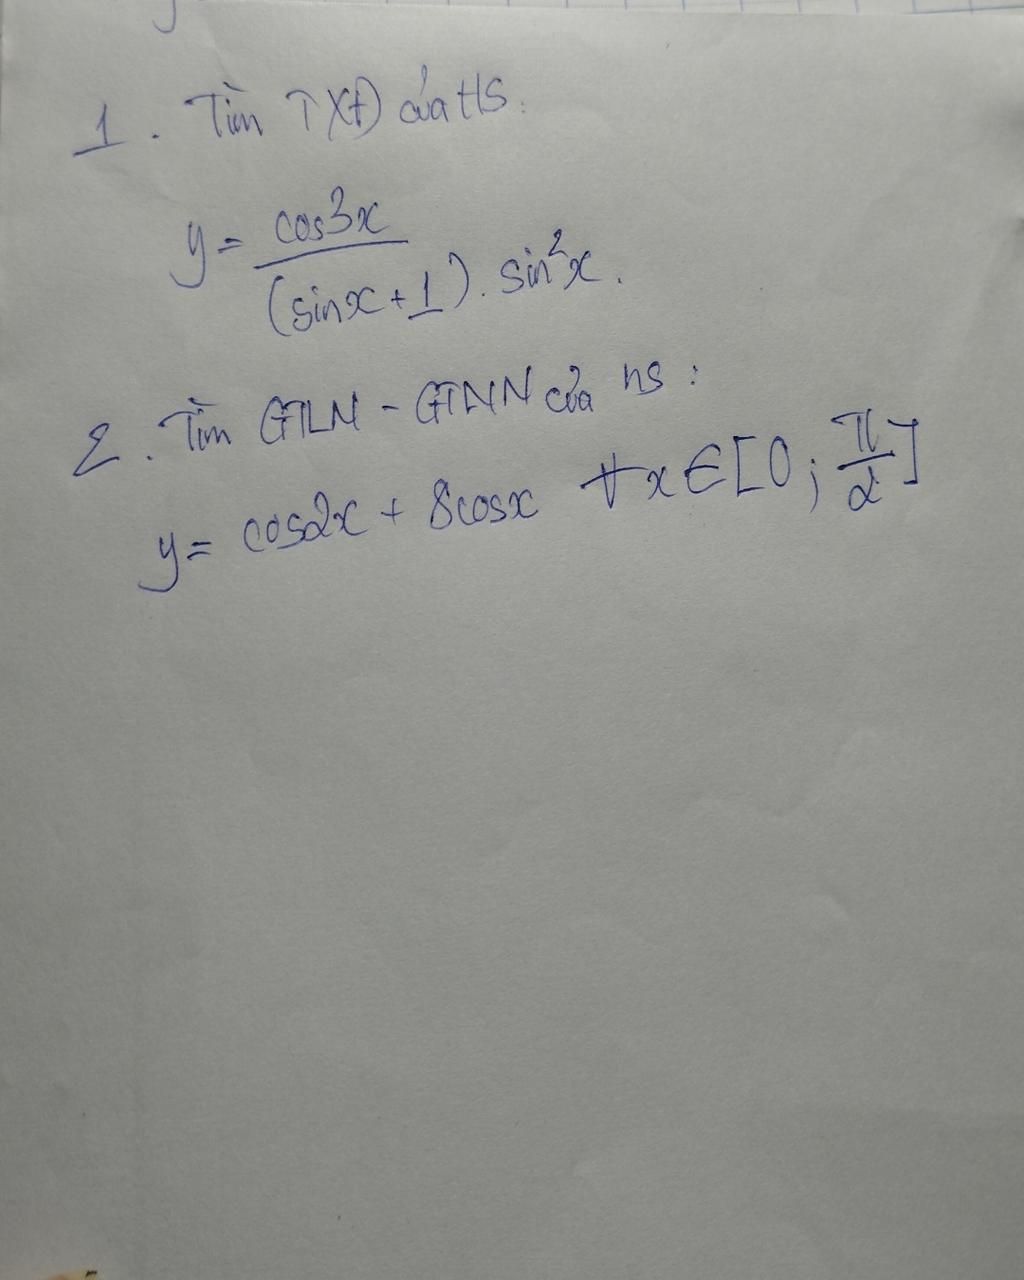 1. Tìm TXĐ của HS:
y = cos3x / (sinx + 1) . sin²x.
2. Tìm GTLN - GTNN của hs:
y = cos2x + 8cosx ∀x ∈ [0; π/2]